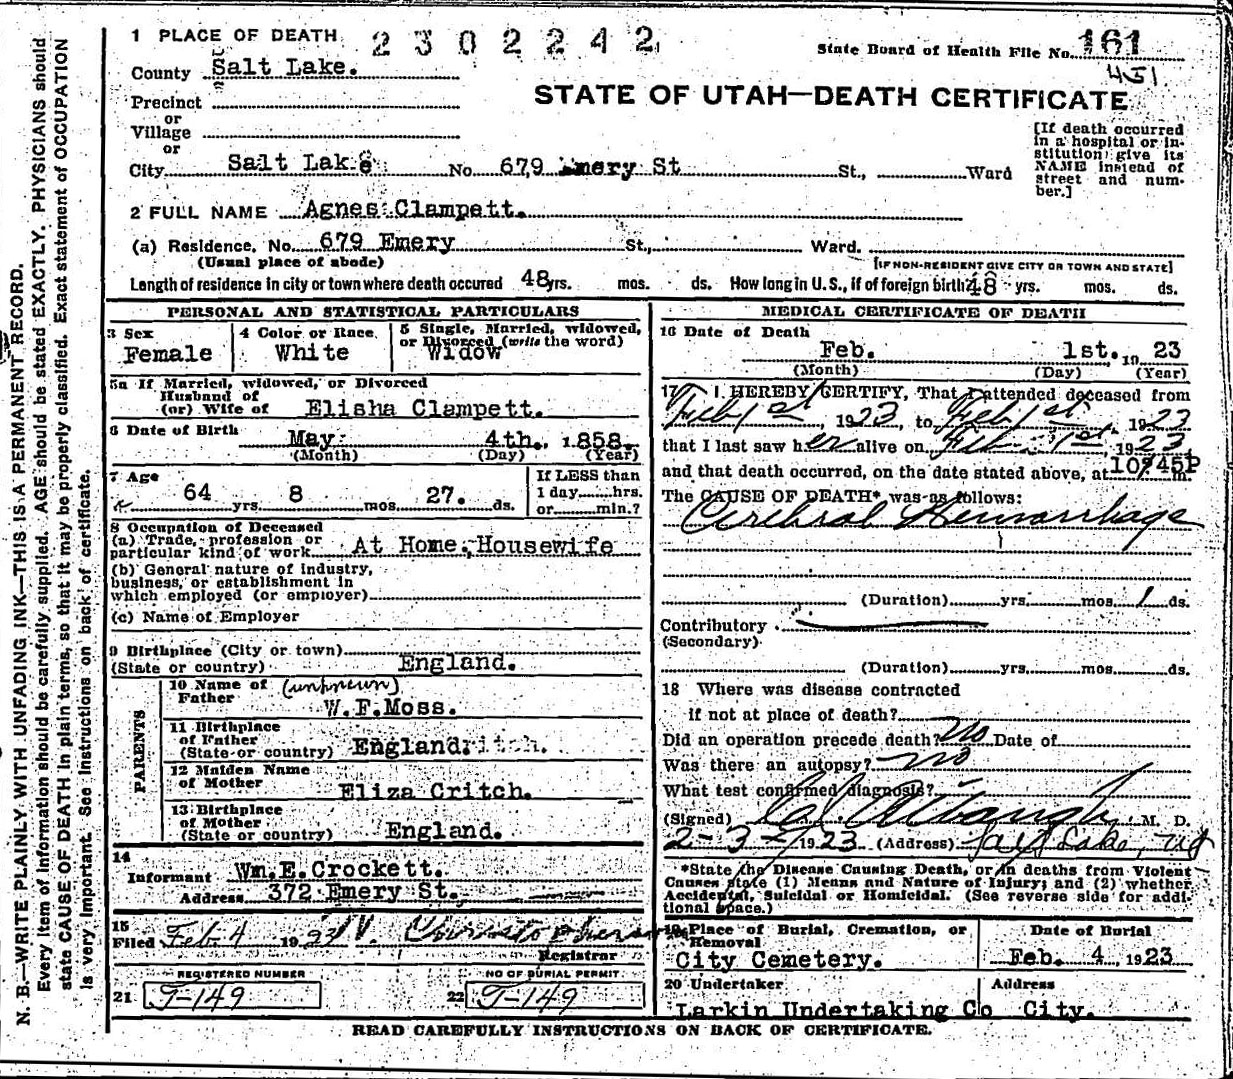 1 PLACE OF DEATH 2302242
State Board of Health File No. 161
451
County Salt Lake.
STATE OF UTAH—DEATH CERTIFICATE
Precinct
or
Village
or
City Salt Lake No. 679 Emery St St., Ward
[If death occurred
in a hospital or in-
stitution give its
NAME instead of
street and num-
ber.]
2 FULL NAME Agnes Clampett.
(a) Residence. No. 679 Emery St., Ward.
(Usual place of abode) [IF NON-RESIDENT GIVE CITY OR TOWN AND STATE]
Length of residence in city or town where death occured 48 yrs. mos. ds. How long in U. S., if of foreign birth? 48 yrs. mos. ds.
PERSONAL AND STATISTICAL PARTICULARS
3 Sex
Female
4 Color or Race
White
5 Single, Married, widowed,
or Divorced (write the word)
Widow
5a If Married, widowed, or Divorced
Husband of
(or) Wife of Elisha Clampett.
6 Date of Birth May 4th., 1858.
(Month) (Day) (Year)
7 Age
64 yrs. 8 mos. 27. ds.
If LESS than
1 day hrs.
or min.?
8 Occupation of Deceased
(a) Trade, profession or
particular kind of work At Home, Housewife
(b) General nature of industry,
business, or establishment in
which employed (or employer)
(c) Name of Employer
9 Birthplace (City or town)
(State or country) England.
PARENTS
10 Name of (unknown)
Father W.F.Moss.
11 Birthplace
of Father
(State or country) England.
12 Maiden Name
of Mother Eliza Critch.
13 Birthplace
of Mother
(State or country) England.
14
Informant Wm.E.Crockett.
Address 372 Emery St.
15
Filed Feb. 4 1923
Registrar
REGISTERED NUMBER NO OF BURIAL PERMIT
21 T-149 22 T-149
MEDICAL CERTIFICATE OF DEATH
16 Date of Death
Feb. 1st. 19 23
(Month) (Day) (Year)
17 I HEREBY CERTIFY, That I attended deceased from
Feb 1st, 1923, to Feb 1st, 1923
that I last saw her alive on Feb. 1st, 1923
and that death occurred, on the date stated above, at 10:45P m.
The CAUSE OF DEATH* was as follows:
Cerebral Hemorrhage
(Duration) yrs. mos. 1 ds.
Contributory
(Secondary)
(Duration) yrs. mos. ds.
18 Where was disease contracted
if not at place of death?
Did an operation precede death? no Date of
Was there an autopsy? no
What test confirmed diagnosis?
(Signed) M. D.
2-3-1923 (Address) Salt Lake, Ut
*State the Disease Causing Death, or in deaths from Violent
Causes state (1) Means and Nature of Injury; and (2) whether
Accidental, Suicidal or Homicidal. (See reverse side for addi-
tional space.)
19 Place of Burial, Cremation, or
Removal
City Cemetery.
Date of Burial
Feb. 4, 1923
20 Undertaker Address
Larkin Undertaking Co City.
READ CAREFULLY INSTRUCTIONS ON BACK OF CERTIFICATE.
N. B.—WRITE PLAINLY WITH UNFADING INK—THIS IS A PERMANENT RECORD.
Every item of information should be carefully supplied. AGE should be stated EXACTLY. PHYSICIANS should
state CAUSE OF DEATH in plain terms, so that it may be properly classified. Exact statement of OCCUPATION
is very important. See instructions on back of certificate.